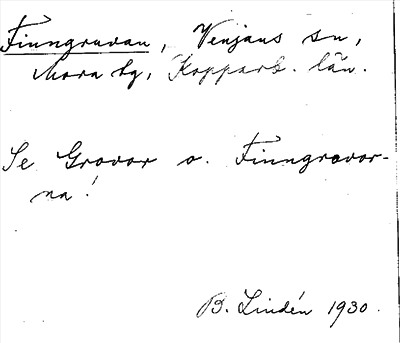 Finngruvan, Venjans sn,
Mora tg, Kopparb. län.
Se Gravor o. Finngravor-
na!
B. Lindén 1930.